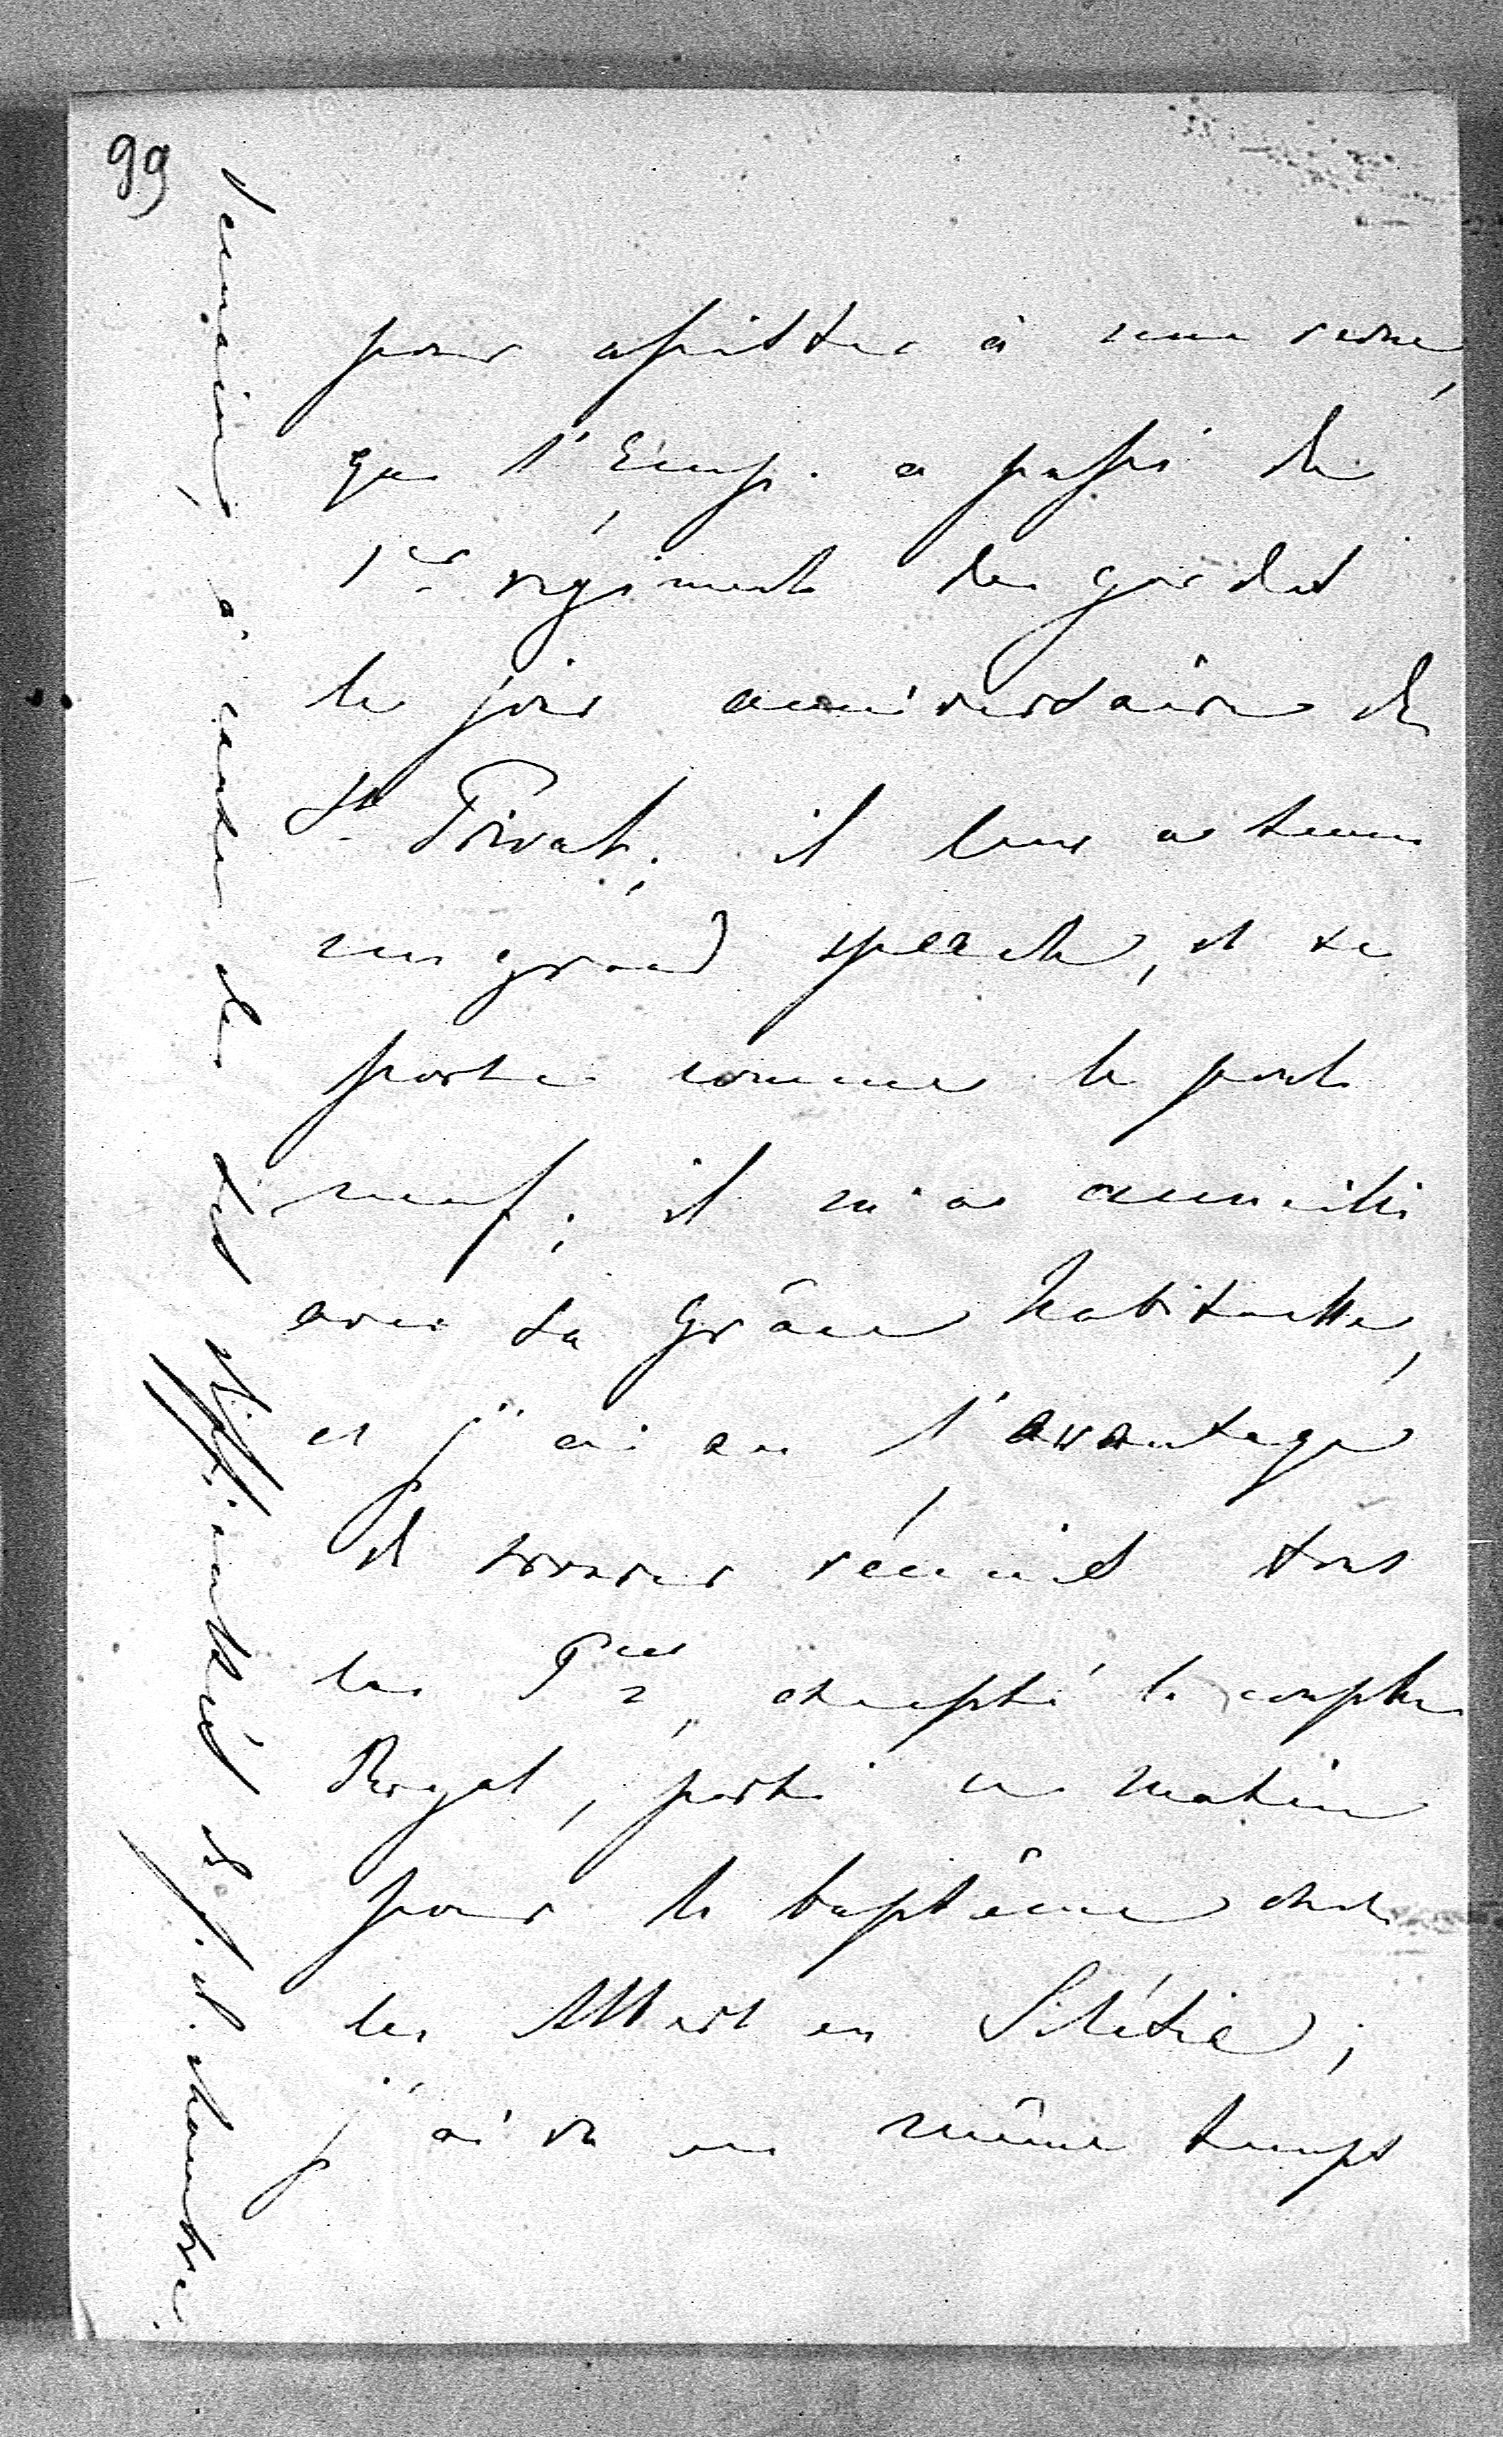 99
pour assister à une revue,
que l'Emp. a passé du
1er régiment des gardes
le jour anniversaire de
St Privat; il leur a tenu
un grand speech, et se
porte comme le pont
neuf; il m'a accueilli
avec sa grâce habituelle,
et j'ai eu l'avantage
d trouver réunis tous
les Pces, excepté le couple
Royal, parti ce matin
pour le baptême chez
les Albert en Silésie;
j'ai vu en même temps
semaine, à cause de ses difficultés